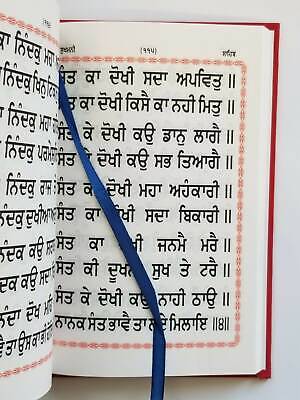 ਕਾ ਨਿੰਦਕੁ ਮਹਾ
ਨਿੰਦਕੁ ਖਿਨੁ
ਕਾ ਨਿੰਦਕੁ ਮਹਾ
ਨਿੰਦਕੁ
ਨਿੰਦਕੁ ਰਾਜ ਤੇ
ਨਿੰਦਕੁ ਦੁਖੀਆ
ਨਿੰਦਕ ਕਉ
ਕਉ ਸਦਾ
ਨਿੰਦਾ ਦੋਖ
ਤਾ ਉਸ ਕਾ ਭੀ
ਸੁਖਮਨੀ (੧੧੫) ਸਾਹਿਬ
ਸੰਤ ਕਾ ਦੋਖੀ ਸਦਾ ਅਪਵਿਤੁ ॥
ਸੰਤ ਕਾ ਦੋਖੀ ਕਿਸੈ ਕਾ ਨਹੀ ਮਿਤੁ ॥
ਸੰਤ ਕੇ ਦੋਖੀ ਕਉ ਡਾਨੁ ਲਾਗੈ ॥
ਸੰਤ ਕੇ ਦੋਖੀ ਕਉ ਸਭ ਤਿਆਗੈ ॥
ਸੰਤ ਕਾ ਦੋਖੀ ਮਹਾ ਅਹੰਕਾਰੀ ॥
ਸੰਤ ਕਾ ਦੋਖੀ ਸਦਾ ਬਿਕਾਰੀ ॥
ਸੰਤ ਕਾ ਦੋਖੀ ਜਨਮੈ ਮਰੈ ॥
ਸੰਤ ਕੀ ਦੂਖਨਾ ਸੁਖ ਤੇ ਟਰੈ ॥
ਸੰਤ ਕੇ ਦੋਖੀ ਕਉ ਨਾਹੀ ਠਾਉ ॥
ਨਾਨਕ ਸੰਤ ਭਾਵੈ ਤਾ ਲਏ ਮਿਲਾਇ ॥੪॥